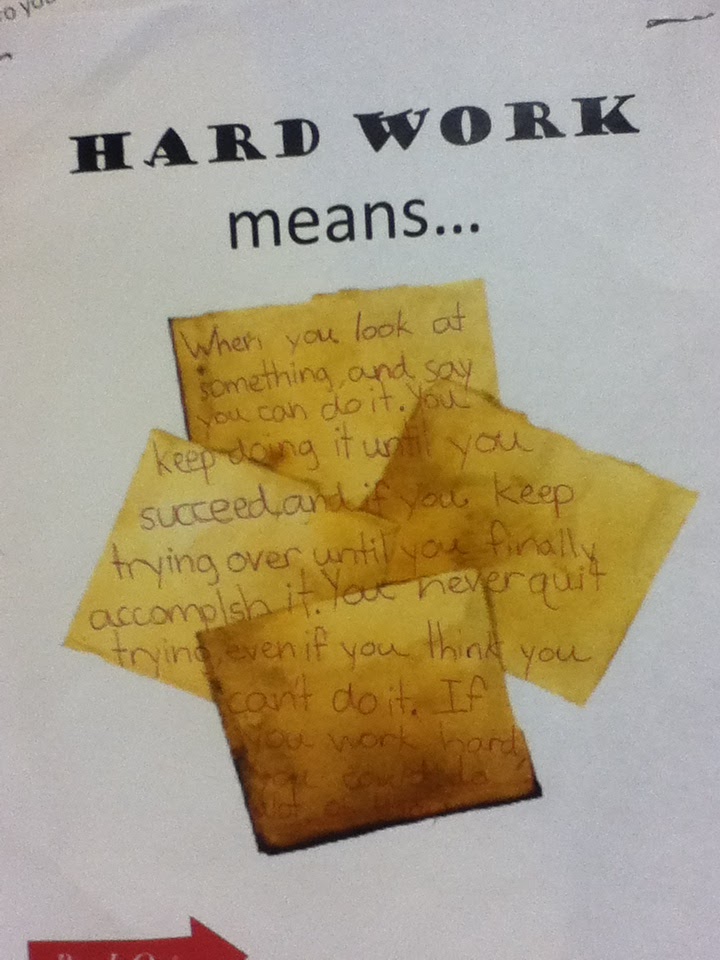 o you
HARD WORK
means...
When you look at
something, and say
you can do it. You
keep doing it until you
succeed, and if you keep
trying over until you finally
accomplsh it. You never quit
trying, even if you think you
can't do it. If
you work hard,
you could do
lot of